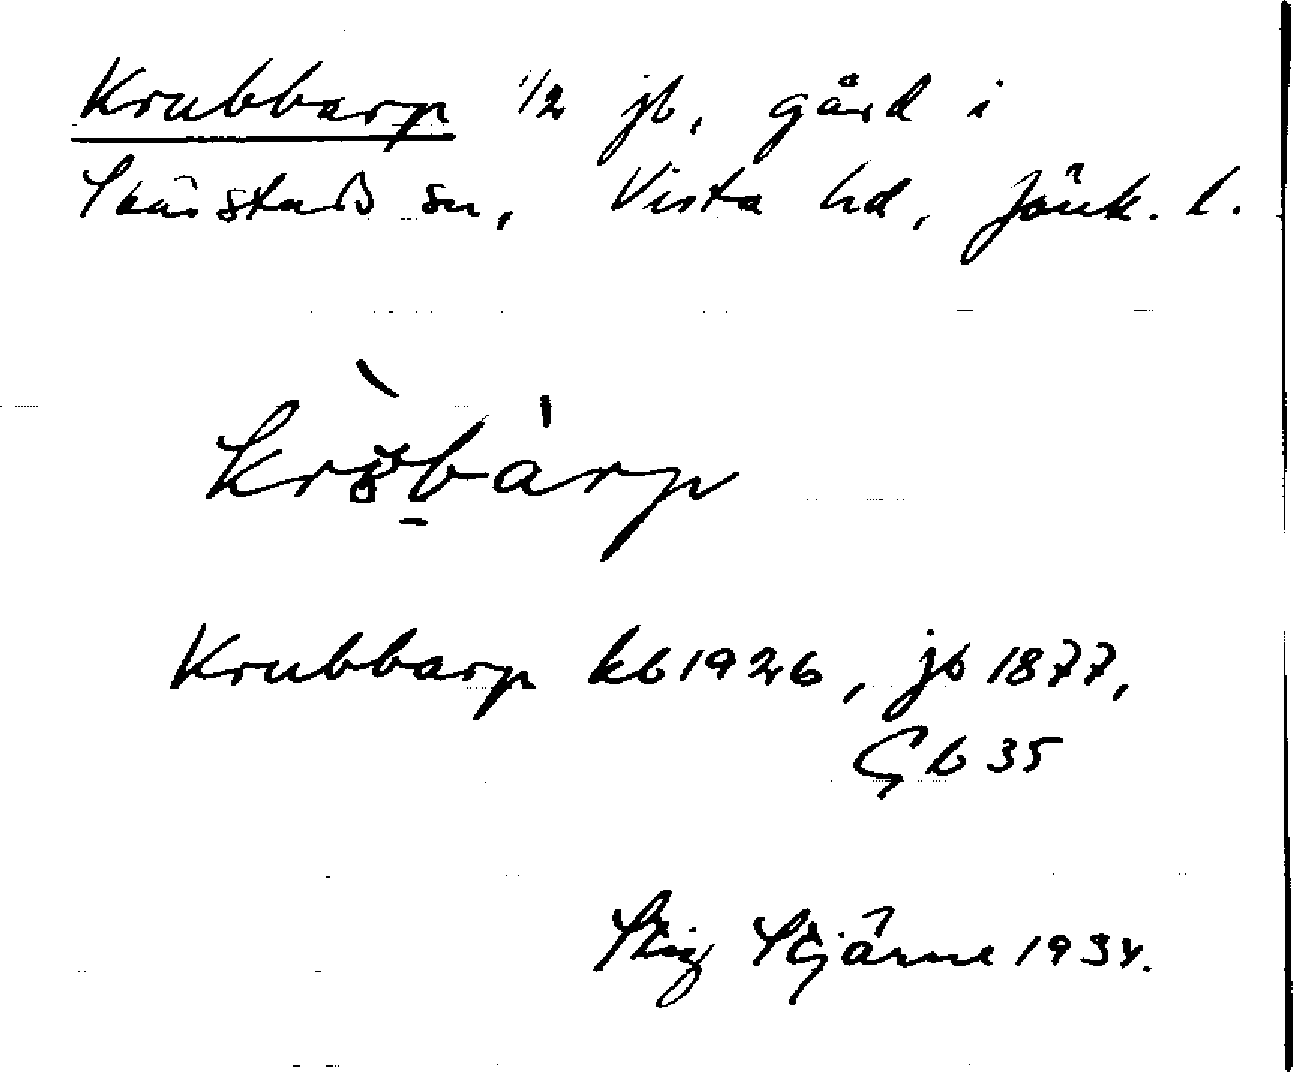 Krubbarp 1/2 jb, gård i
Skärstads sn, Vista hd, Jönk. l.
Krubbarp kb 1926, jb 1877,
Gb 35
Stig Stjärne 1934.